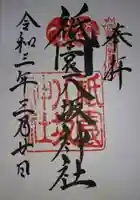 奉拝
祇園八坂神社
令和三年三月廿日